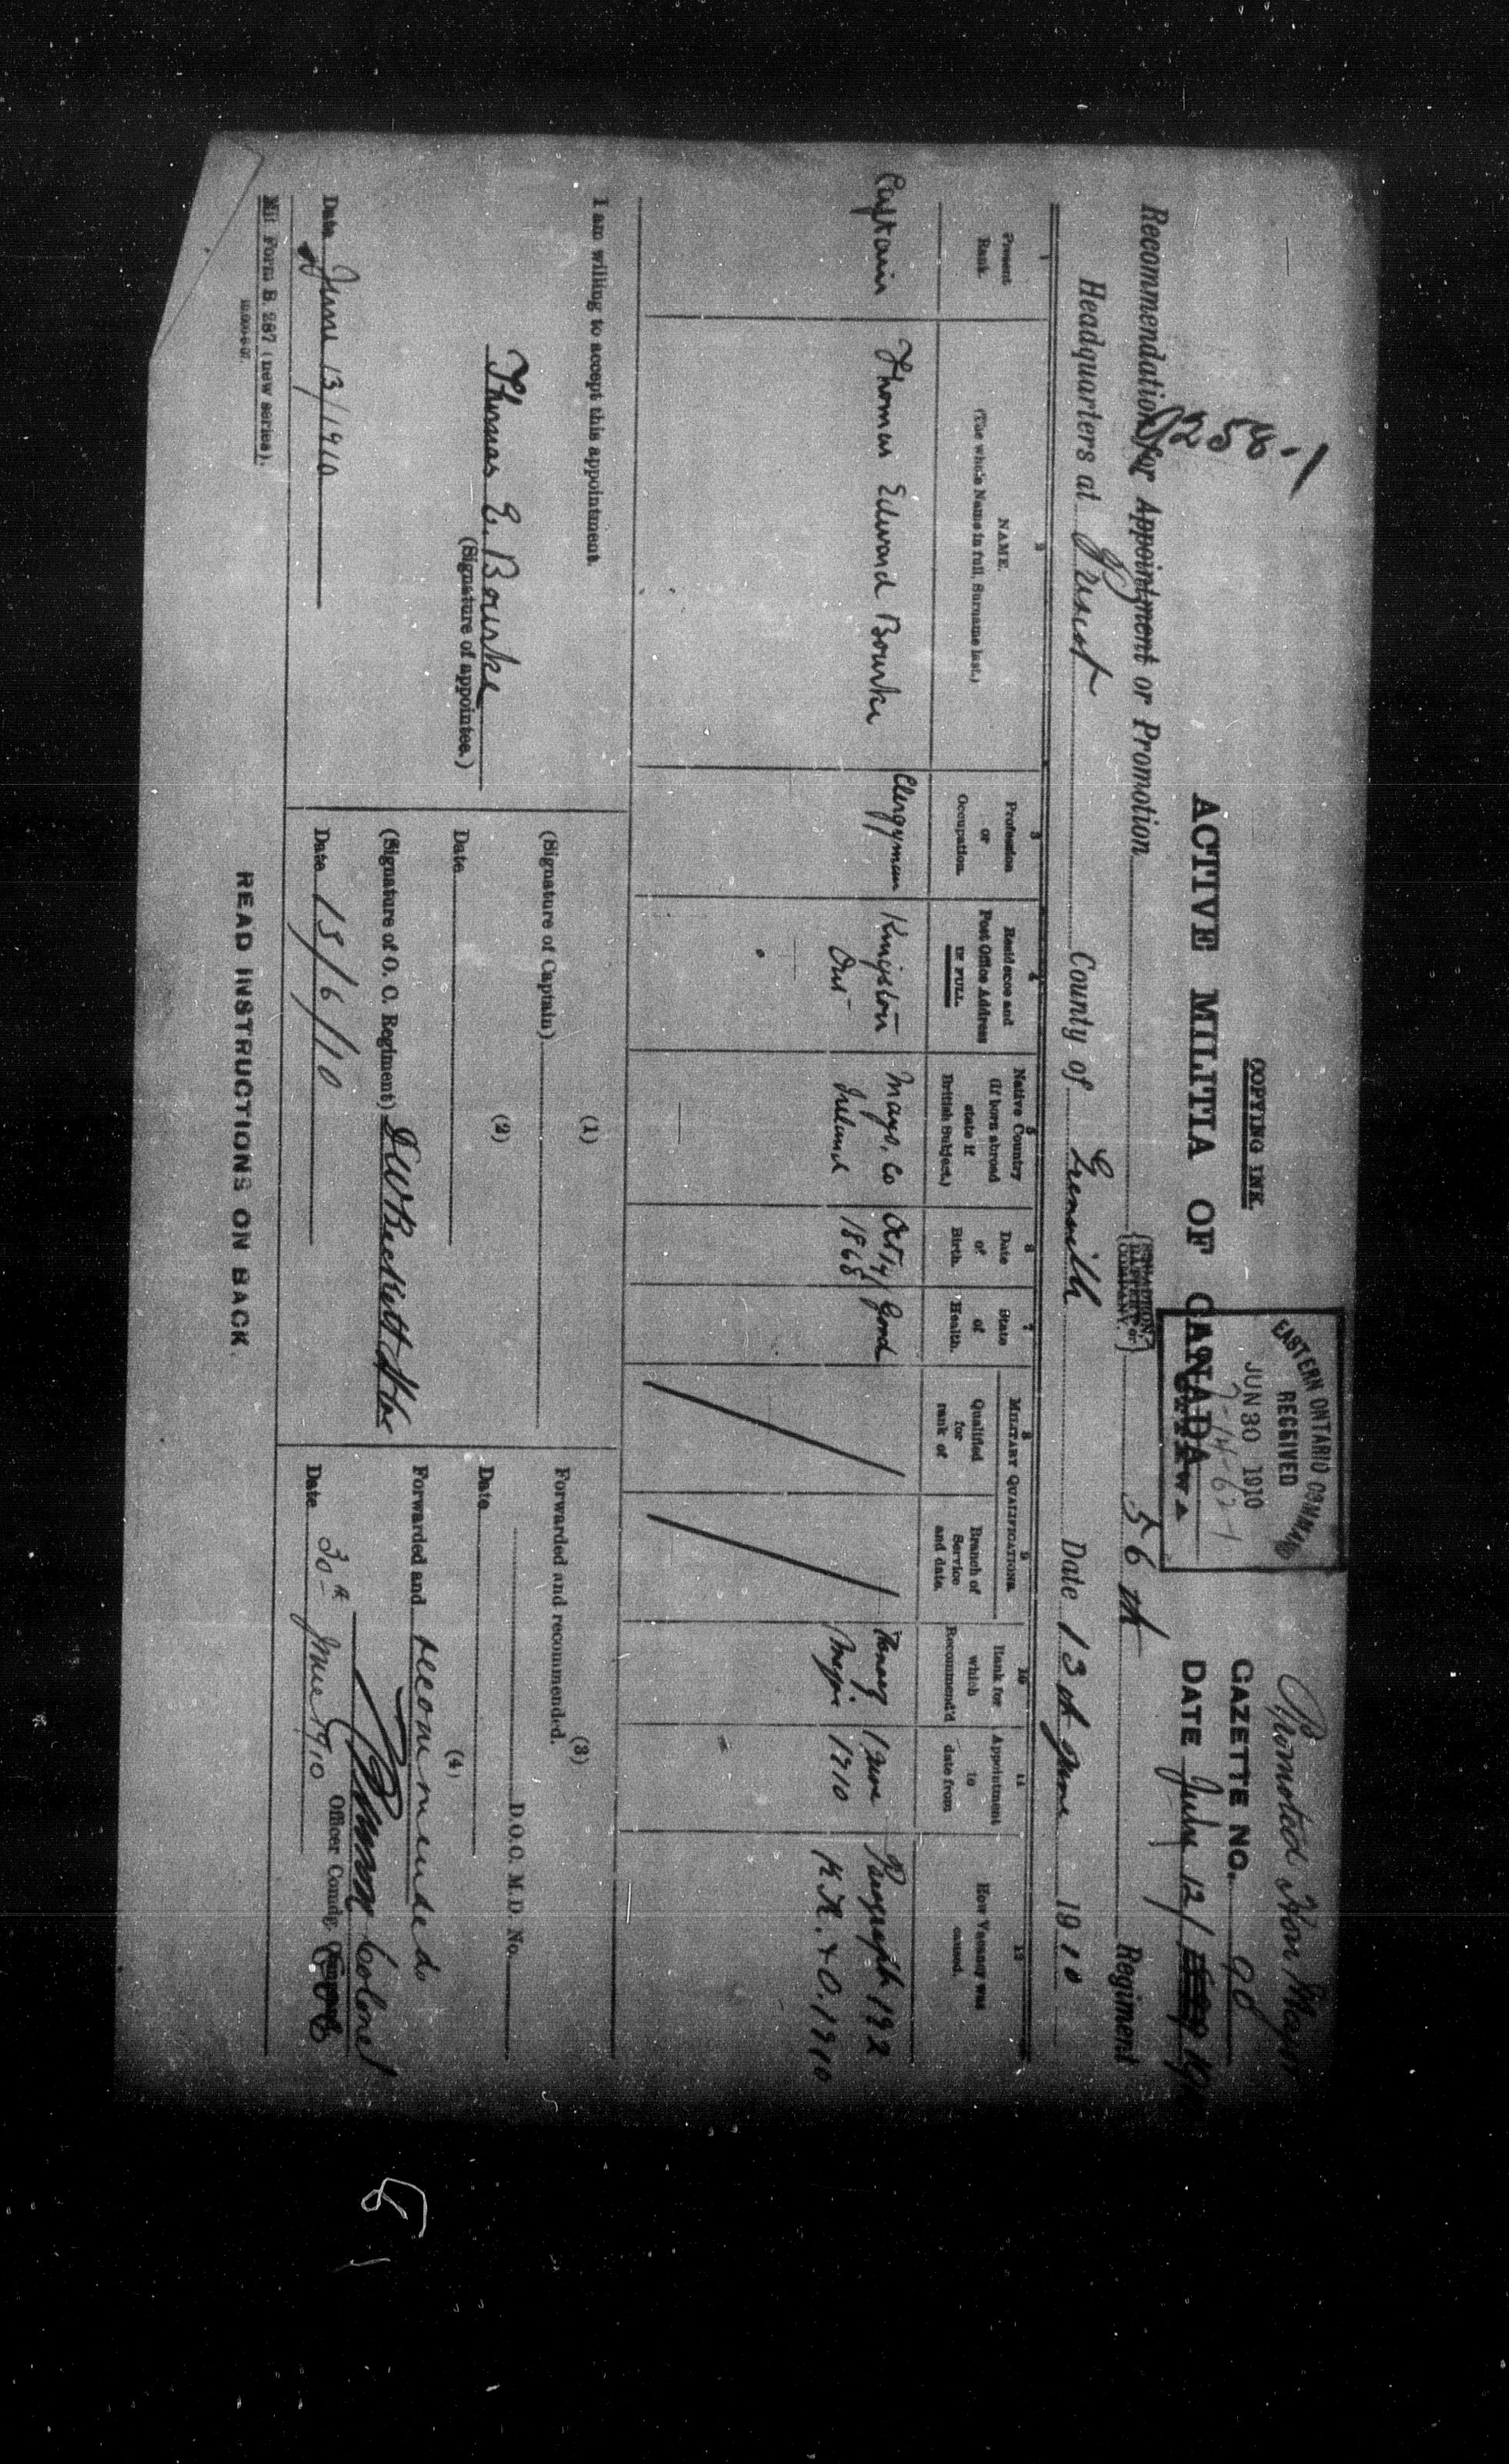 COPYING INK.
Promoted Hon Major
GAZETTE NO. 90
DATE July 12/
EASTERN ONTARIO COMMAND
RECEIVED
JUN 30 1910
7-14-62-1
OTTAWA
ACTIVE MILITIA OF CANADA
258-1
Recommendation for Appointment or Promotion
{SQUADRON, BATTERY or COMPANY.} 56th Regiment
Headquarters at County of Grenville Date 13th June 1910
1 2 3 4 5 6 7 8 9 10 11 12
Present Rank
NAME.
(The whole Name in full, Surname last.)
Profession or Occupation.
Residence and Post Office Address IN FULL.
Native Country (If born abroad state if British Subject.)
Date of Birth.
State of Health.
MILITARY QUALIFICATIONS.
Qualified for rank of
Branch of Service and date.
Rank for which Recommend'd
Appointment to date from
How Vacancy was caused.
Captain Thomas Edward Bourke Clergyman Kingston Mayo, Co Oct 14/ Good Honory 1 June Paragraph 192
Ont Ireland 1868 Major 1910 K.R. & O. 1910
I am willing to accept this appointment.
Thomas E. Bourke
(Signature of appointee.)
Date June 13/1910
(1)
(Signature of Captain)
(2)
Date
(Signature of O. C. Regiment)
Date 15/6/10
(3)
Forwarded and recommended.
D.O.C. M.D. No.
Date
(4)
Forwarded and recommended
Colonel
Officer Comdg.
Date 30th June 1910
Mil Form B. 287 (new series).
10,000-6-07.
READ INSTRUCTIONS ON BACK.